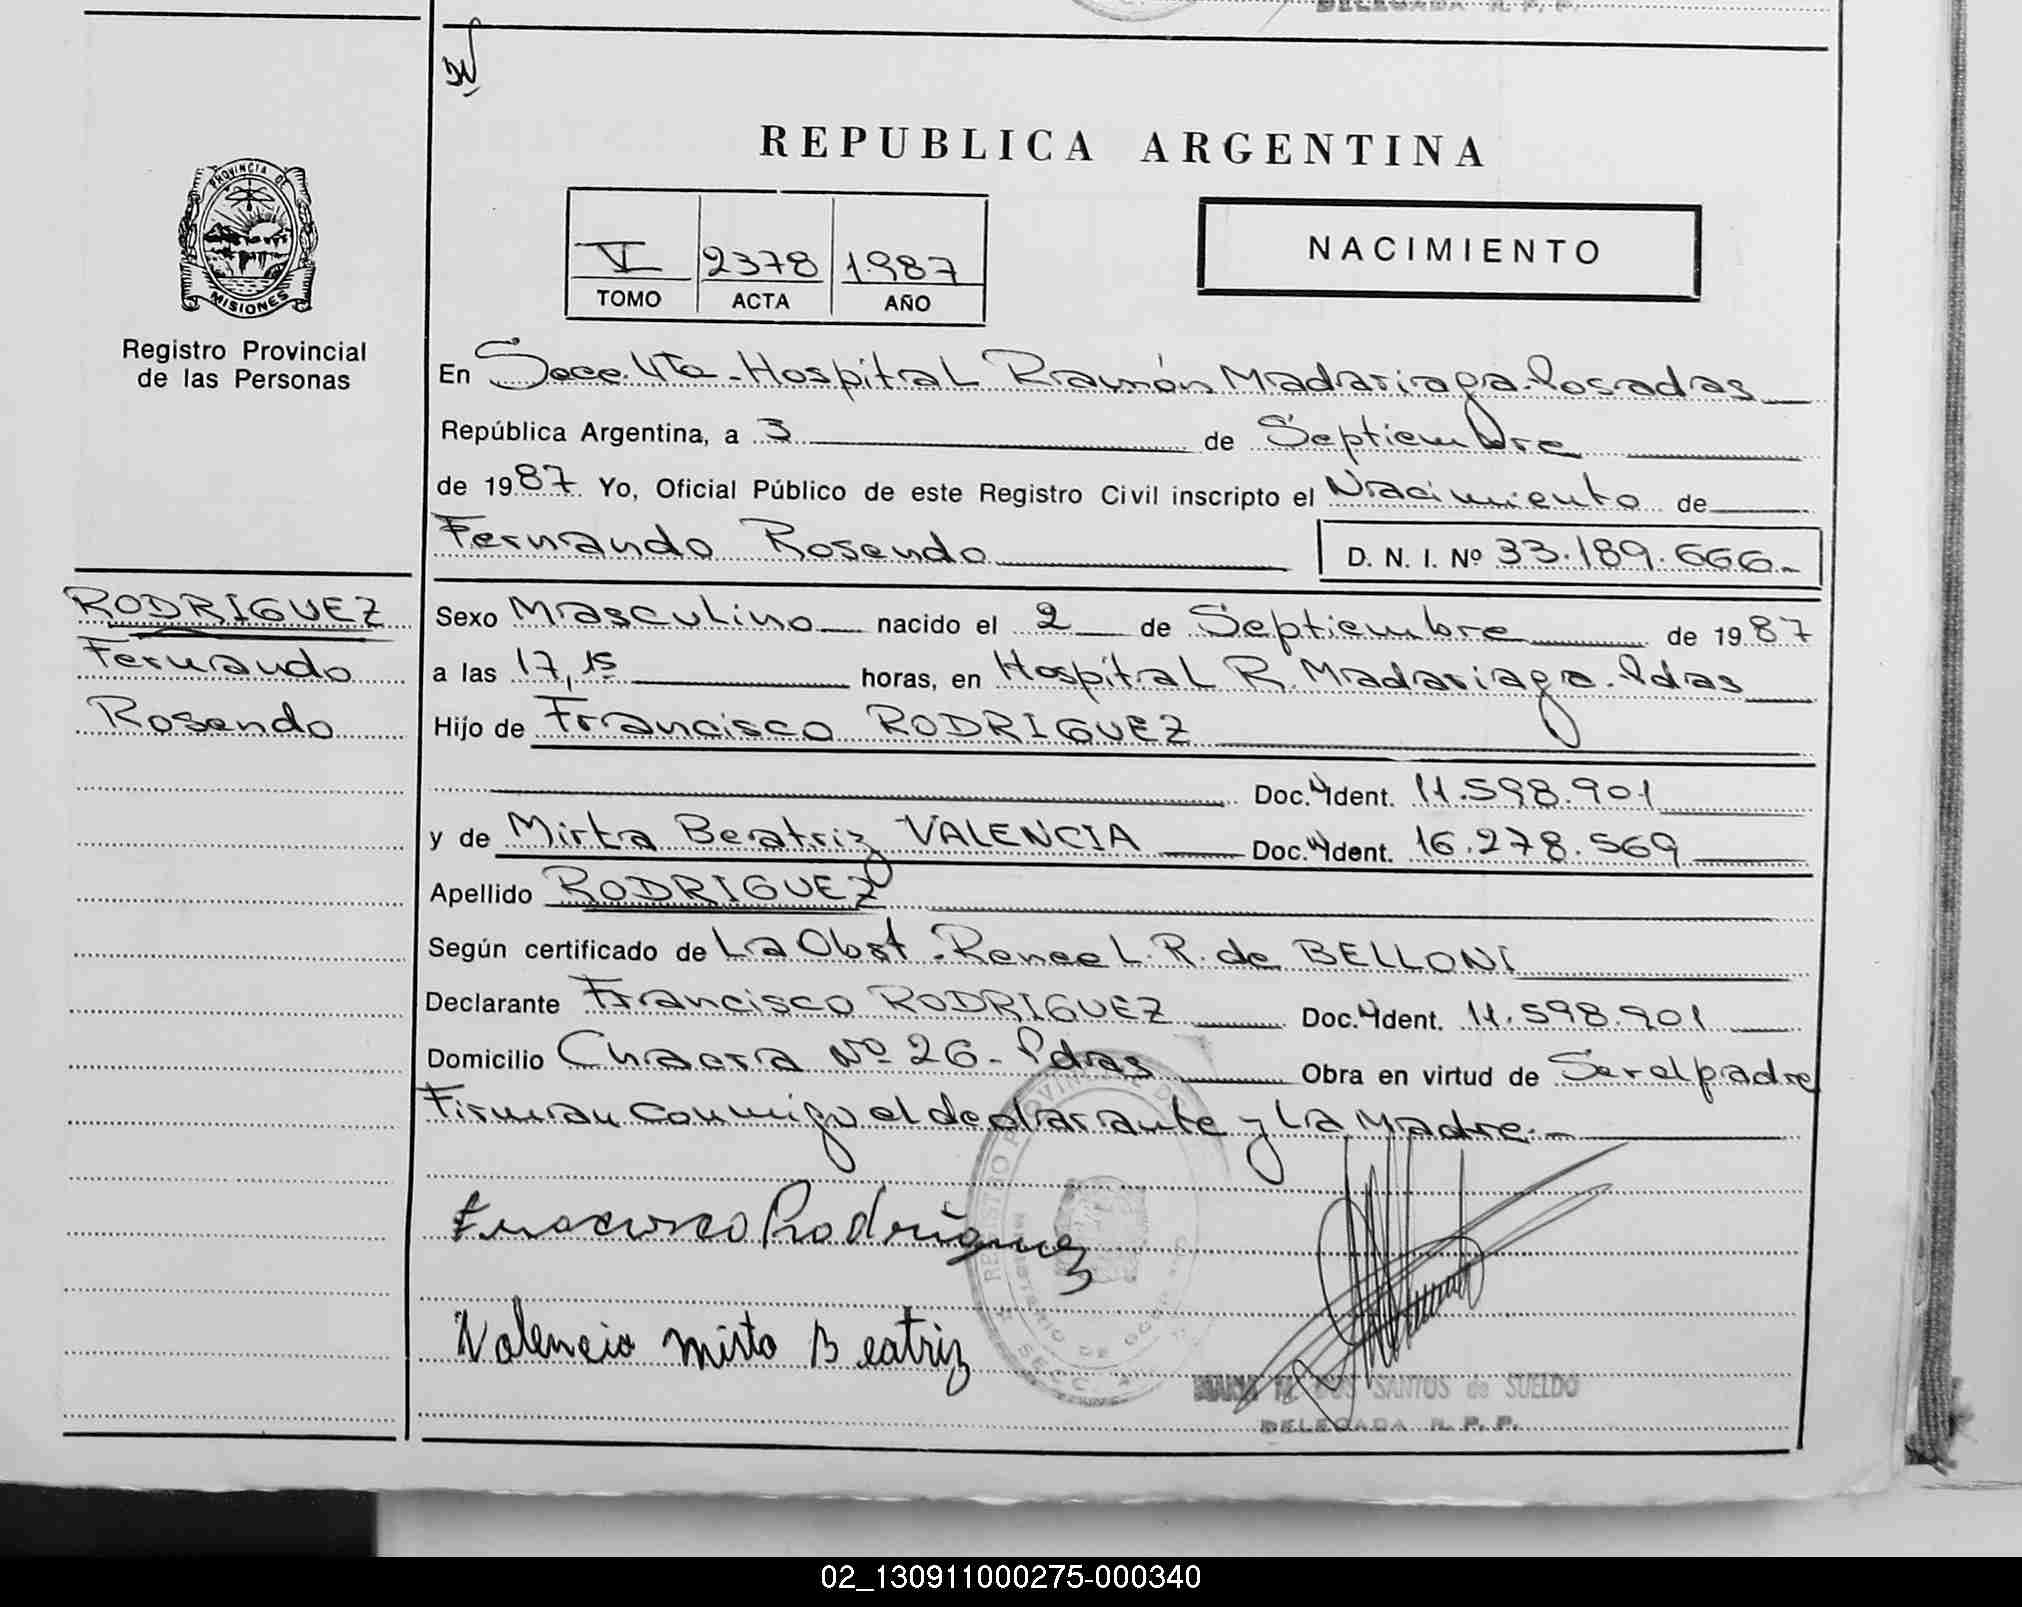 DELEGADA R. P. P.
REPUBLICA ARGENTINA
PROVINCIA DE
MISIONES
Registro Provincial
de las Personas
VI 2378 1.987
TOMO ACTA AÑO
NACIMIENTO
En Secc. 4ta - Hospital Ramón Madariaga - Posadas
República Argentina, a 3 de Septiembre
de 1987. Yo, Oficial Público de este Registro Civil inscripto el Nacimiento de
Fernando Rosendo
D. N. I. Nº 33.189.666.-
RODRIGUEZ
Fernando
Rosendo
Sexo Masculino nacido el 2 de Septiembre de 1987
a las 17,15 horas, en Hospital R. Madariaga - Pdas
Hijo de Francisco RODRIGUEZ
Doc. Ident. 11.598.901
y de Mirta Beatriz VALENCIA Doc. Ident. 16.278.569
Apellido RODRIGUEZ
Según certificado de La Obst. Renee L. R. de BELLONI
Declarante Francisco RODRIGUEZ Doc. Ident. 11.598.901
Domicilio Chacra Nº 26 - Pdas Obra en virtud de Ser el padre
Firman conmigo el declarante y la Madre.-
Francisco Rodriguez
Valencia Mirta Beatriz
DOS SANTOS de SUELDO
DELEGADA R. P. P.
02_130911000275-000340